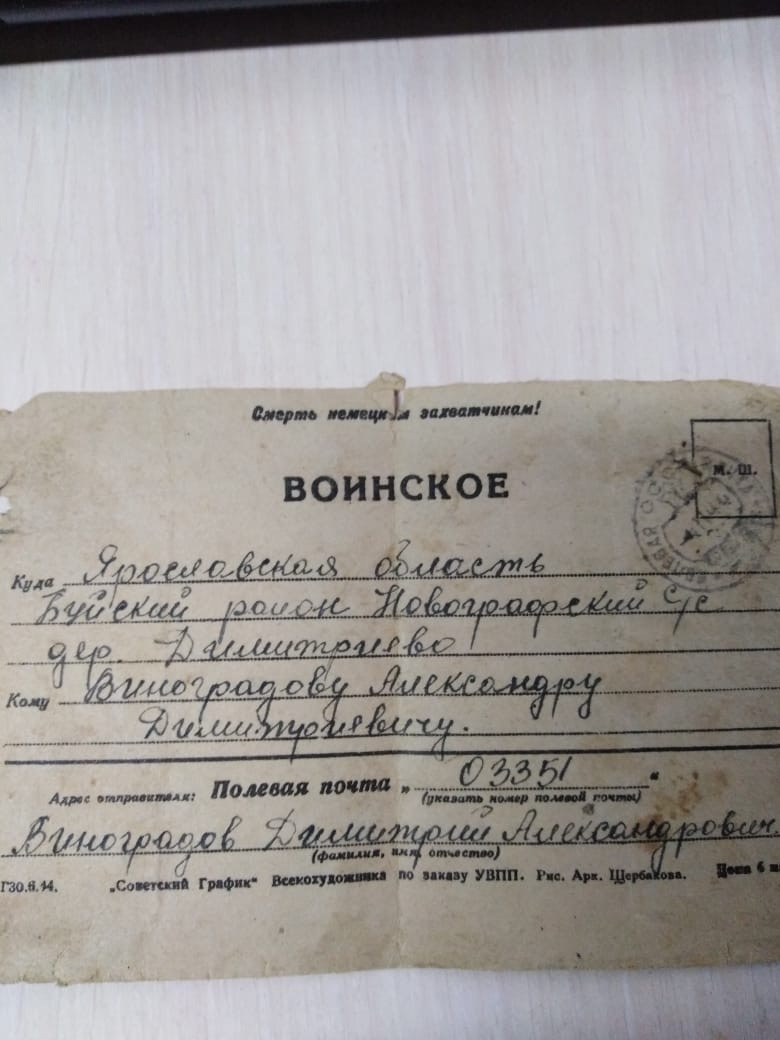 Смерть немецким захватчинам!
ВОИНСКОЕ
М. Ш.
Куда Ярославская область
Буйский район Новографский С/с
дер. Димитриево
Кому Виноградову Александру
Димитриевичу.
Адрес отправителя: Полевая почта „ 03351 “
(указать номер полевой почты)
Виноградов Димитрий Александрович
(фамилия, имя, отчество)
Г30.6.14. „Советский График“ Всекохудожника по заказу УВПП. Рис. Арк. Щербакова. Цена 6